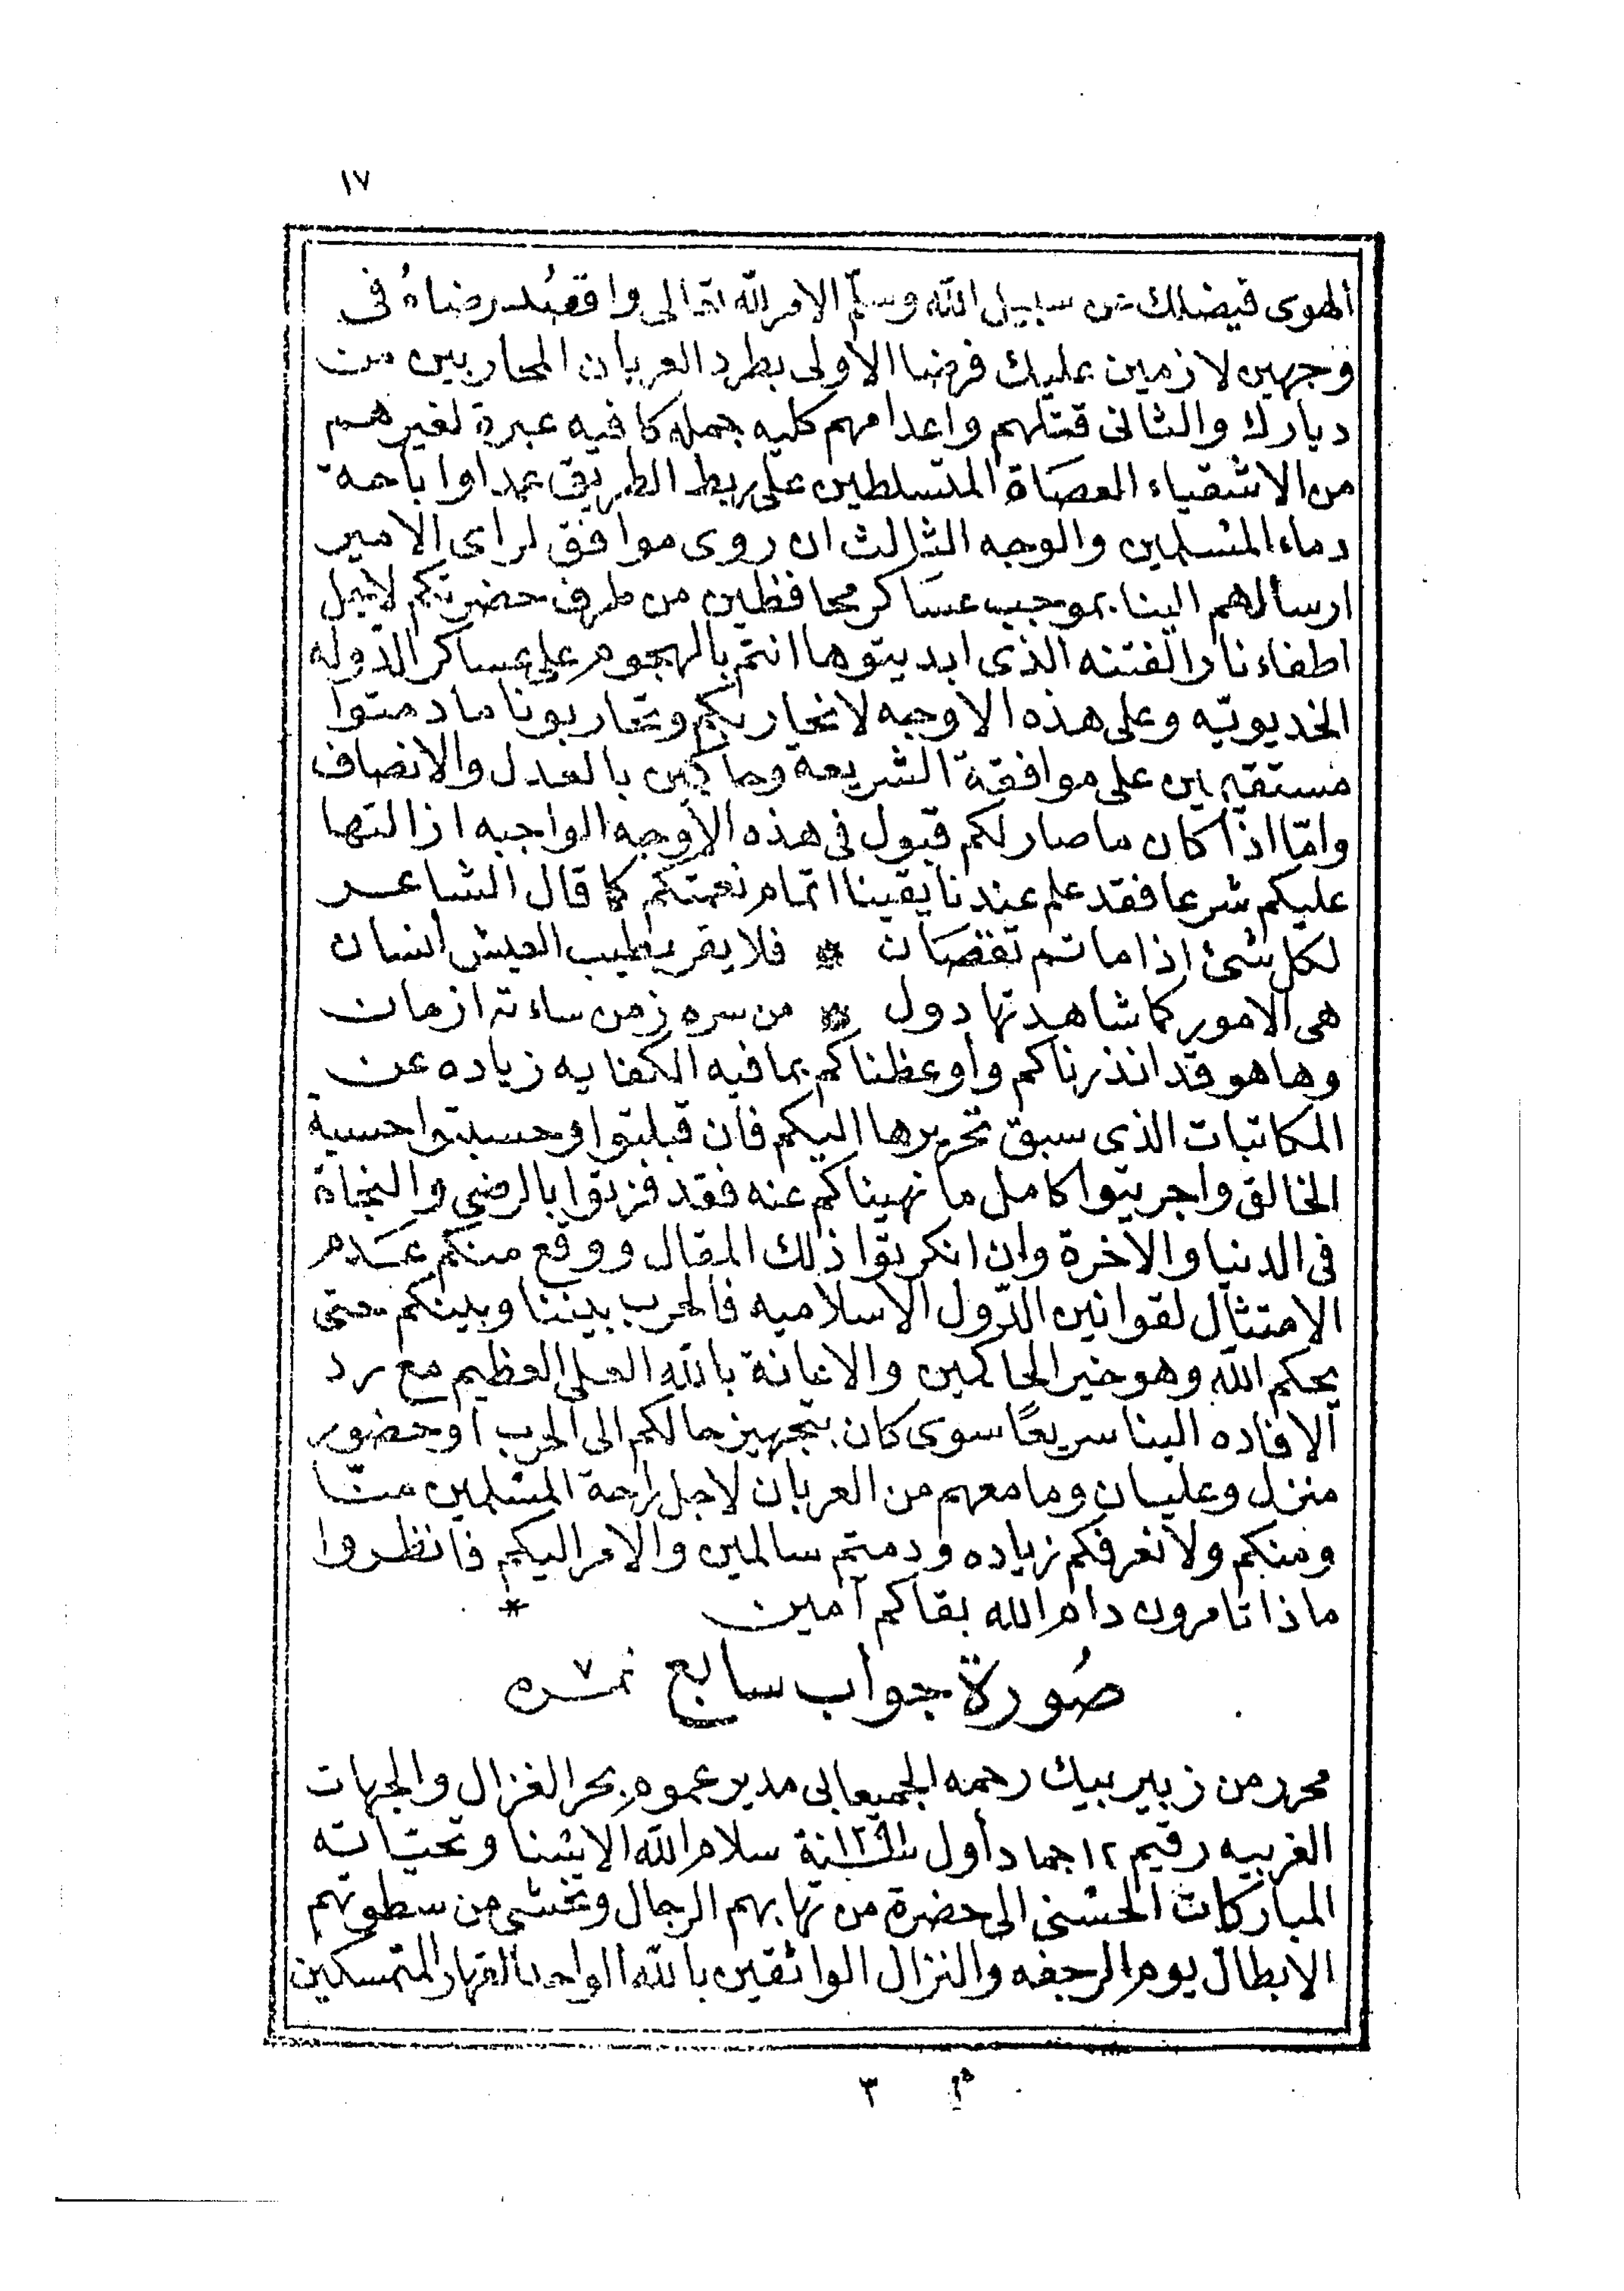 ١٧
الهوى فيضلك عن سبيل الله وسلّم الامر لله تعالى واقصُد رضاهُ فى
وجهين لازمين عليك فرضا الأولى بطرد العربان المحاربين من
ديارك والثانى قتلهم واعدامهم كليه جملة كافيه عبرة لغيرهم
من الاشقياء العصَاة المتسلطين على ربط الطريق عمدا واباحة
دماء المسلمين والوجه الثالث ان روى موافق لراى الامير
ارسالهم الينا بموجب عسَاكر محافظين من طرف حضرتكم لاجل
اطفاء نار الفتنه الذى ابديتوها انتم بالهجوم على عساكر الدوله
الخديويّه وعلى هذه الاوجه لا نحاربكم وتحاربونا ما دمتوا
مستقيمين على موافقة الشريعة وحاكمين بالعدل والانصاف
وامّا اذا كان ما صار لكم قبول فى هذه الأوجه الواجبه ازالتها
عليكم شرعا فقد علم عندنا يقينا اتمام نعمتكم كما قال الشاعر
لكل شئ اذا ما تم نقصَان * فلا يغر بطيب العيش انسان
هى الامور كما شاهدتها دول * من سره زمن ساءته ازمان
وها هو قد انذرناكم وأوعظناكم بما فيه الكفايه زياده عن
المكاتبات الذى سبق تحريرها اليكم فأن قبلتوا وحسبتوا حسبة
الخالق واجريتوا كامل ما نهيناكم عنه فقد فزتوا بالرضى والنجاة
فى الدنيا والاخرة وان انكرتوا ذلك المقال ووقع منكم عَدم
الامتثال لقوانين الدّول الاسلاميه فالحرب بيننا وبينكم حتى
يحكم الله وهو خير الحاكمين والاعانة بالله العلى العظيم مع رد
الافاده الينا سريعًا سوى كان بتجهيز حالكم الى الحرب أو حضور
منزل وعليان وما معهم من العربان لاجل راحة المسلمين منّا
ومنكم ولا نعرفكم زياده ودمتم سالمين والامر اليكم فانظروا
ماذا تامرون دام الله بقاكم آمين *
صُورة جواب سابع نمره ٧
محرر من زبير بيك رحمه الجميعابى مدير عموم بحر الغزال والجهات
الغربيه رقيم ١٢ جماد أول سنة ١٢٩١ سلام الله الاسنا وتحيّاته
المباركات الحسنى الى حضرة من تهابهم الرجال وتخشى من سطوتهم
الابطال يوم الرجفه والنزال الواثقين بالله الواحد القهار المتمسكين
٣